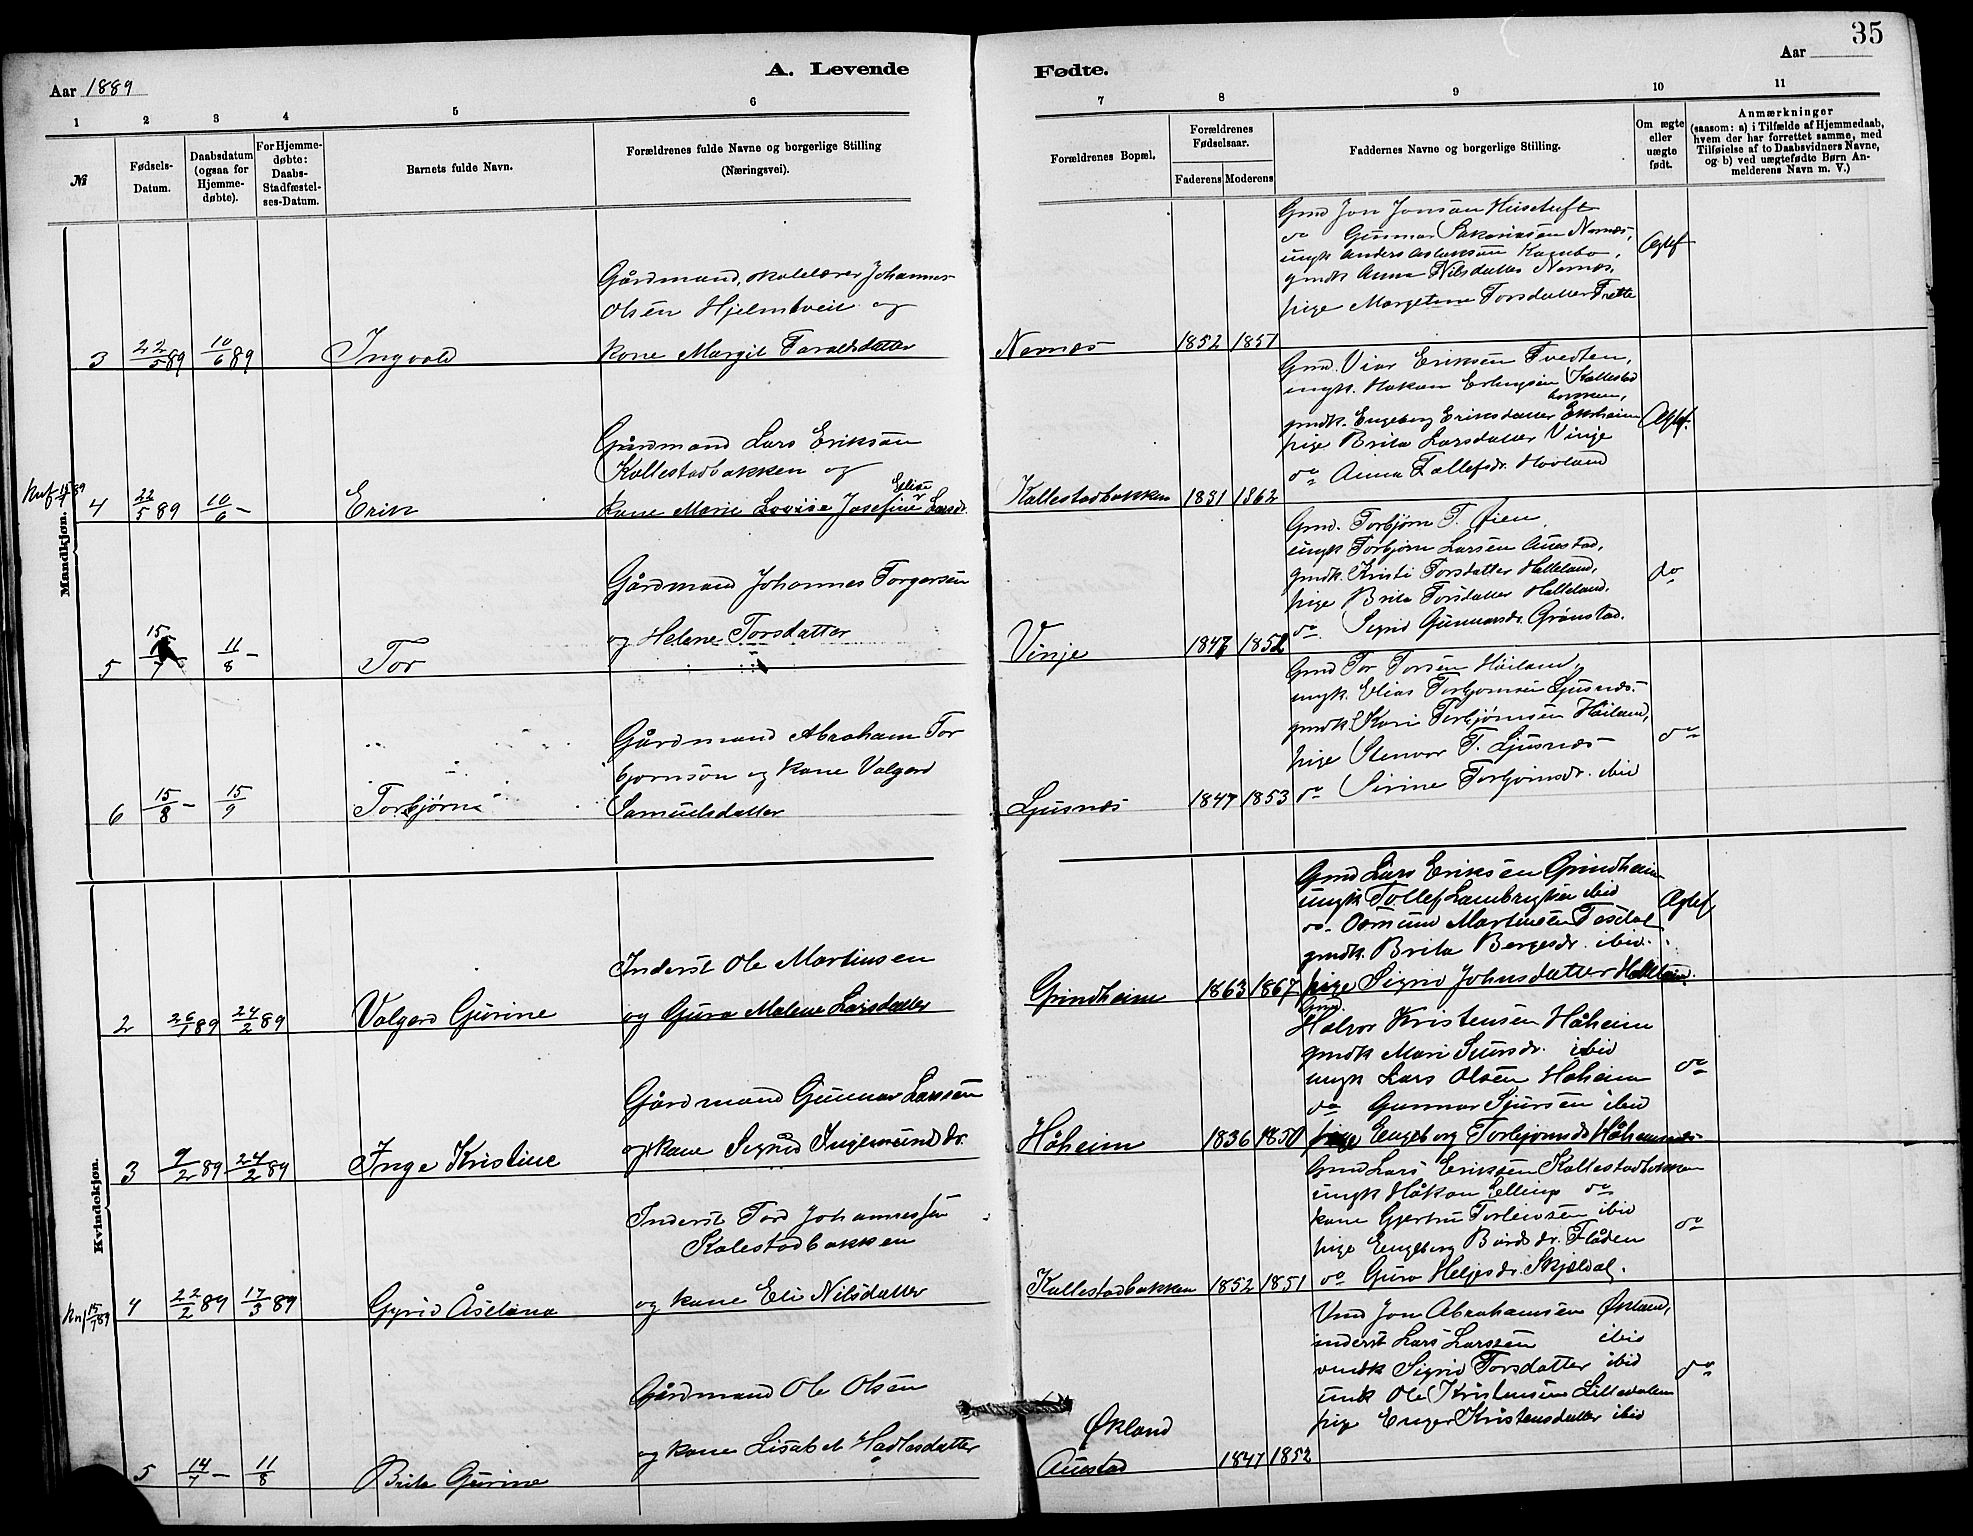 35
Aar 1889
A. Levende
Fødte.
Aar
1 2 3 4 5 6
7 8 9 10 11
№
Fødsels-Datum.
Daabsdatum (ogsaa for Hjemme-døbte).
For Hjemme-døbte: Daabs-Stadfæstel-ses-Datum.
Barnets fulde Navn.
Forældrenes fulde Navne og borgerlige Stilling
(Næringsvei).
Forældrenes Bopæl.
Forældrenes Fødselsaar.
Faderens Moderens
Faddernes Navne og borgerlige Stilling.
Om ægte eller uægte født.
Anmærkninger
(saasom: a) i Tilfælde af Hjemmedaab,
hvem der har forrettet samme, med
Tilføielse af to Daabsvidners Navne,
og b) ved uægtefødte Børn An-
melderens Navn m. V.)
Mandkjøn.
3 22/5 89 10/6 89 Ingvald
Gårdmand, skolelærer Johannes
Olsen Hjelmtveit og
kone Margit Taraldsdatter
Nernæs 1852 1857
Gmd Jon Jonson
do Gunnar Sakariasen Nernæs,
ungk Anders Aslaksøn
gmdk Anna Nilsdatter Nernæs,
pige Torsdatter Trette
Ægtef
4 22/5 89 10/6 - Erik
Gårdmand Lars Eriksøn
Kallestadbakken og
Elise
kone Marie Lovise Josefine Larsdr.
Kallestadbakken 1831 1862
Gmd. Eriksøn Tvedten,
ungk. Håkon Erlingsøn Kallestad
bakken,
gmdk. Engeborg Eriksdatter
pige Brita Larsdatter Vinje
do Anna Tollefsdr. Hovland
Ægtef.
5 15/7 11/8 - Tor
Gårdmand Johannes Torgersen
og Helene Torsdatter
Vinje 1847 1852
Gmd. Torbjørn T. Øien,
ungk Torbjørn Larsen Auestad,
gmdk. Kristi Torsdatter Helleland,
pige Brita Torsdatter Helleland,
do. Sigrid Gunnarsdr. Grønstad.
do
6 15/8 - 15/9 Torbjørn
Gårdmand Abraham Tor
bjørnsøn og kone Valgerd
Samuelsdatter
Ljusnæs 1847 1853
Gmd Tor Torsen Håiland,
ungk. Elias Torbjørnsen Ljusnæs.
gmdk Kari Torbjørnsen Håiland,
pige Stenvor T. Ljusnæs
do Sirine Torbjørnsdr. ibid
do
Kvindekjøn.
2 26/1 89 24/2 89 Valgerd Gurine
Inderst Ole Martinsen
og Guro Malene Larsdatter
Grindheim 1863 1867
Gmd Lars Eriksen Grindheim
ungk Tollef Lambrigtsen ibid
do. Osmund Martinsen Tosdal
gmdk. Brita Bergesdr. ibid.
pige Sigrid Johnsdatter
Ægtef
3 9/2 89 24/2 89 Inga Kristine
Gårdmand Gunnar Larsen
og kone Sigrid Ingemundsdr.
Håheim 1836 1850
Gmd.
Halvor Kristensen Håheim
gmdk Mari Sjursdr. ibid
ungk Lars Olsen Håheim
do Gunnar Sjursen ibid
pige Engeborg Torbjørnsdr Håheimsnes
do
4 22/2 89 17/3 89 Gyrid Åselana
Inderst Tord Johannessen
Kalestadbakken
og kone Eli Nilsdatter
Kallestadbakken 1852 1851
Gmd Lars Eriksen Kallestadbakken
ungk Håkon Ellings do
kone Gjertru Torleivsen ibid
pige Engeborg Bårdsdr. Flåden
do Guro Heljesdr. Skjeldal.
do
5 14/7 - 11/8 Brita Gurine
Gårdmand Ole Olsen
og kone Lisabet Hadlesdatter
Økland
Auestad 1847 1852
Jon Abrahamsen Økland,
inderst Lars Larssen ibid
Sigrid Torsdatter ibid
unk Ole Kristensen Lilledalen
pige Enger Kristensdatter ibid
do